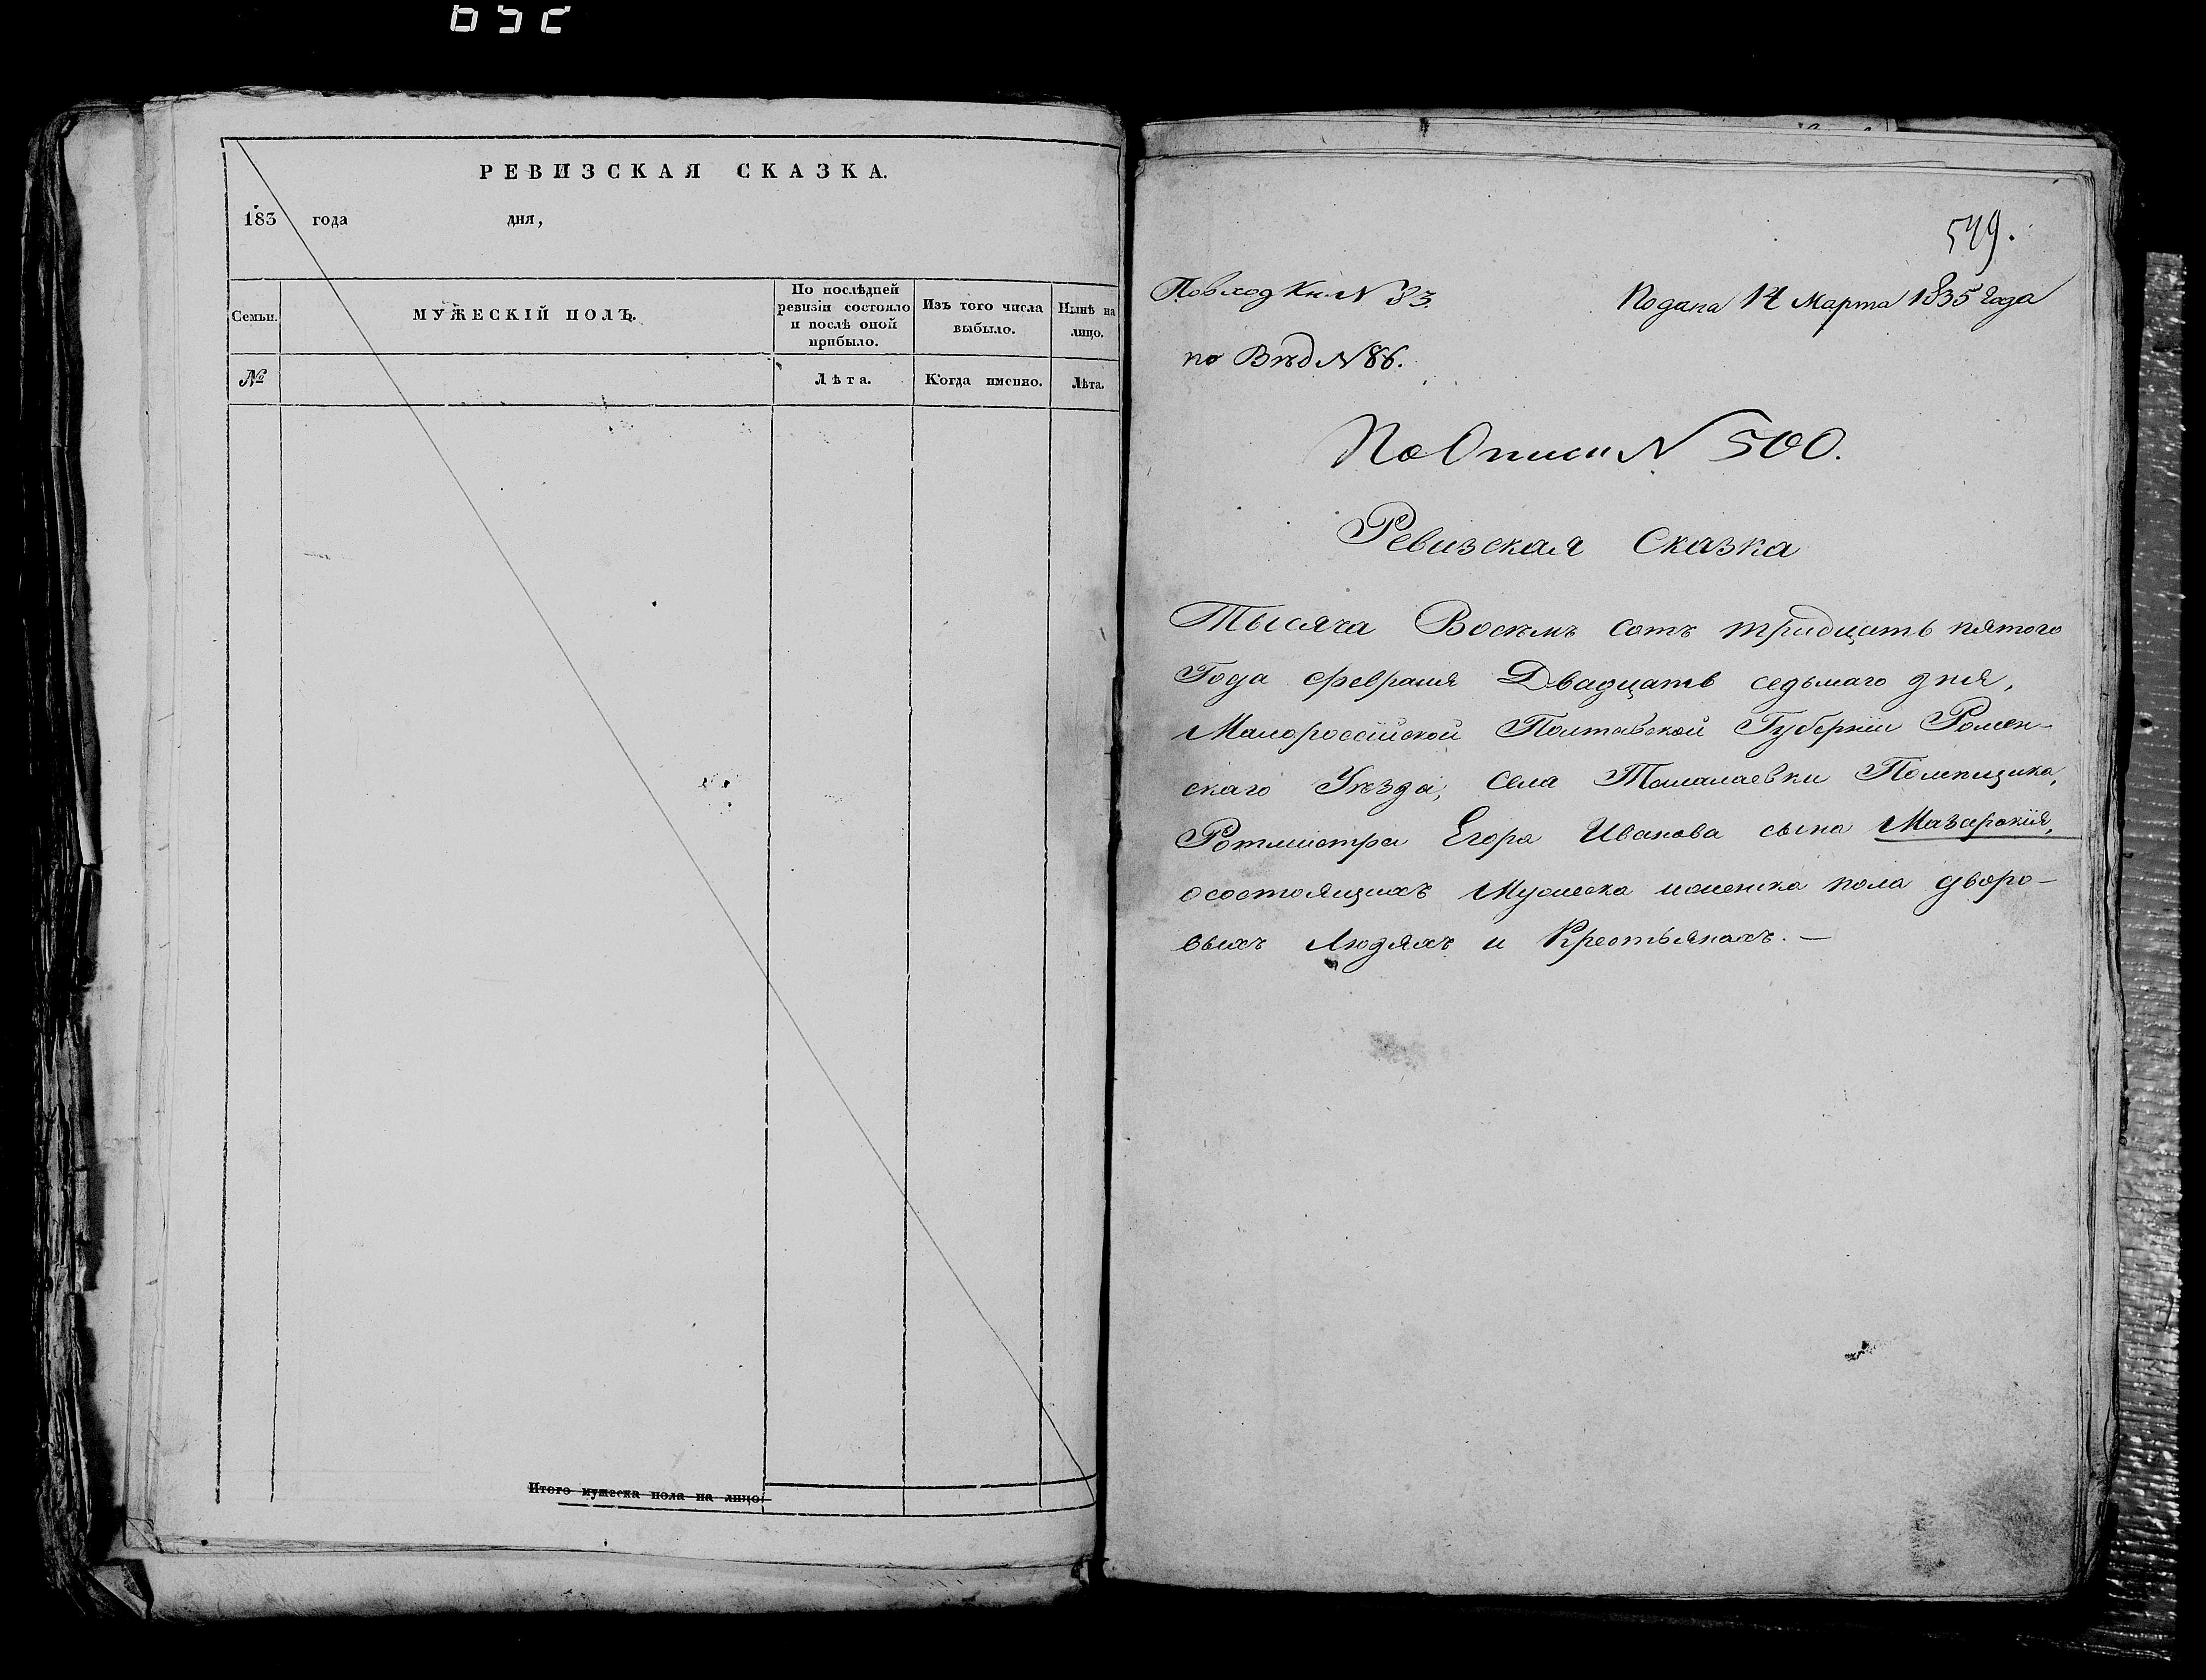 РЕВИЗСКАЯ СКАЗКА.
183 года дня,
Семьи.
МУЖЕСКІЙ ПОЛЪ.
По послѣдней
ревизіи состояло
и послѣ оной
прибыло.
Изъ того числа
выбыло.
Нынѣ на
лицо.
№
Лѣта.
Когда именно.
Лѣта.
Итого мужеска пола на лицо
549.
По вход Кн. N 33.
Подана 14 Марта 1835 года
по Вѣд N 86.
По Описи N 500.
Ревизская Сказка
Тысяча Восемъ сотъ тридцать пятого
Года февраля Двадцать седьмаго дня,
Малороссійской Полтавской Губерніи Ромен-
скаго Уѣзда, села Томашевки Помещика,
Ротмистра Егора Иванова сына Мазаракія,
осостоящихъ Мужеска иженска пола дворо-
выхъ Людяхъ и Крестьянахъ. —